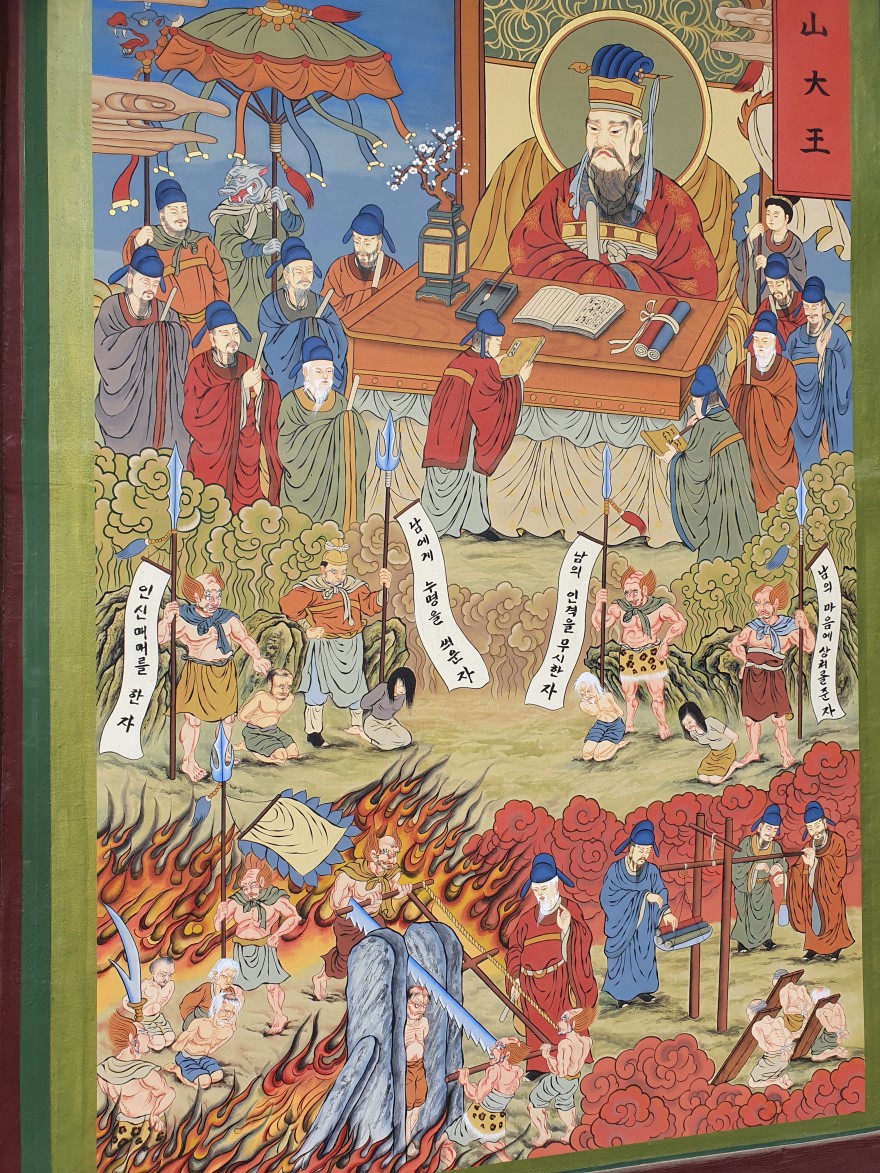 山大王
인신매매를 한 자
남에게 누명을 씌운 자
남의 인격을 무시한 자
남의 마음에 상처를 준 자